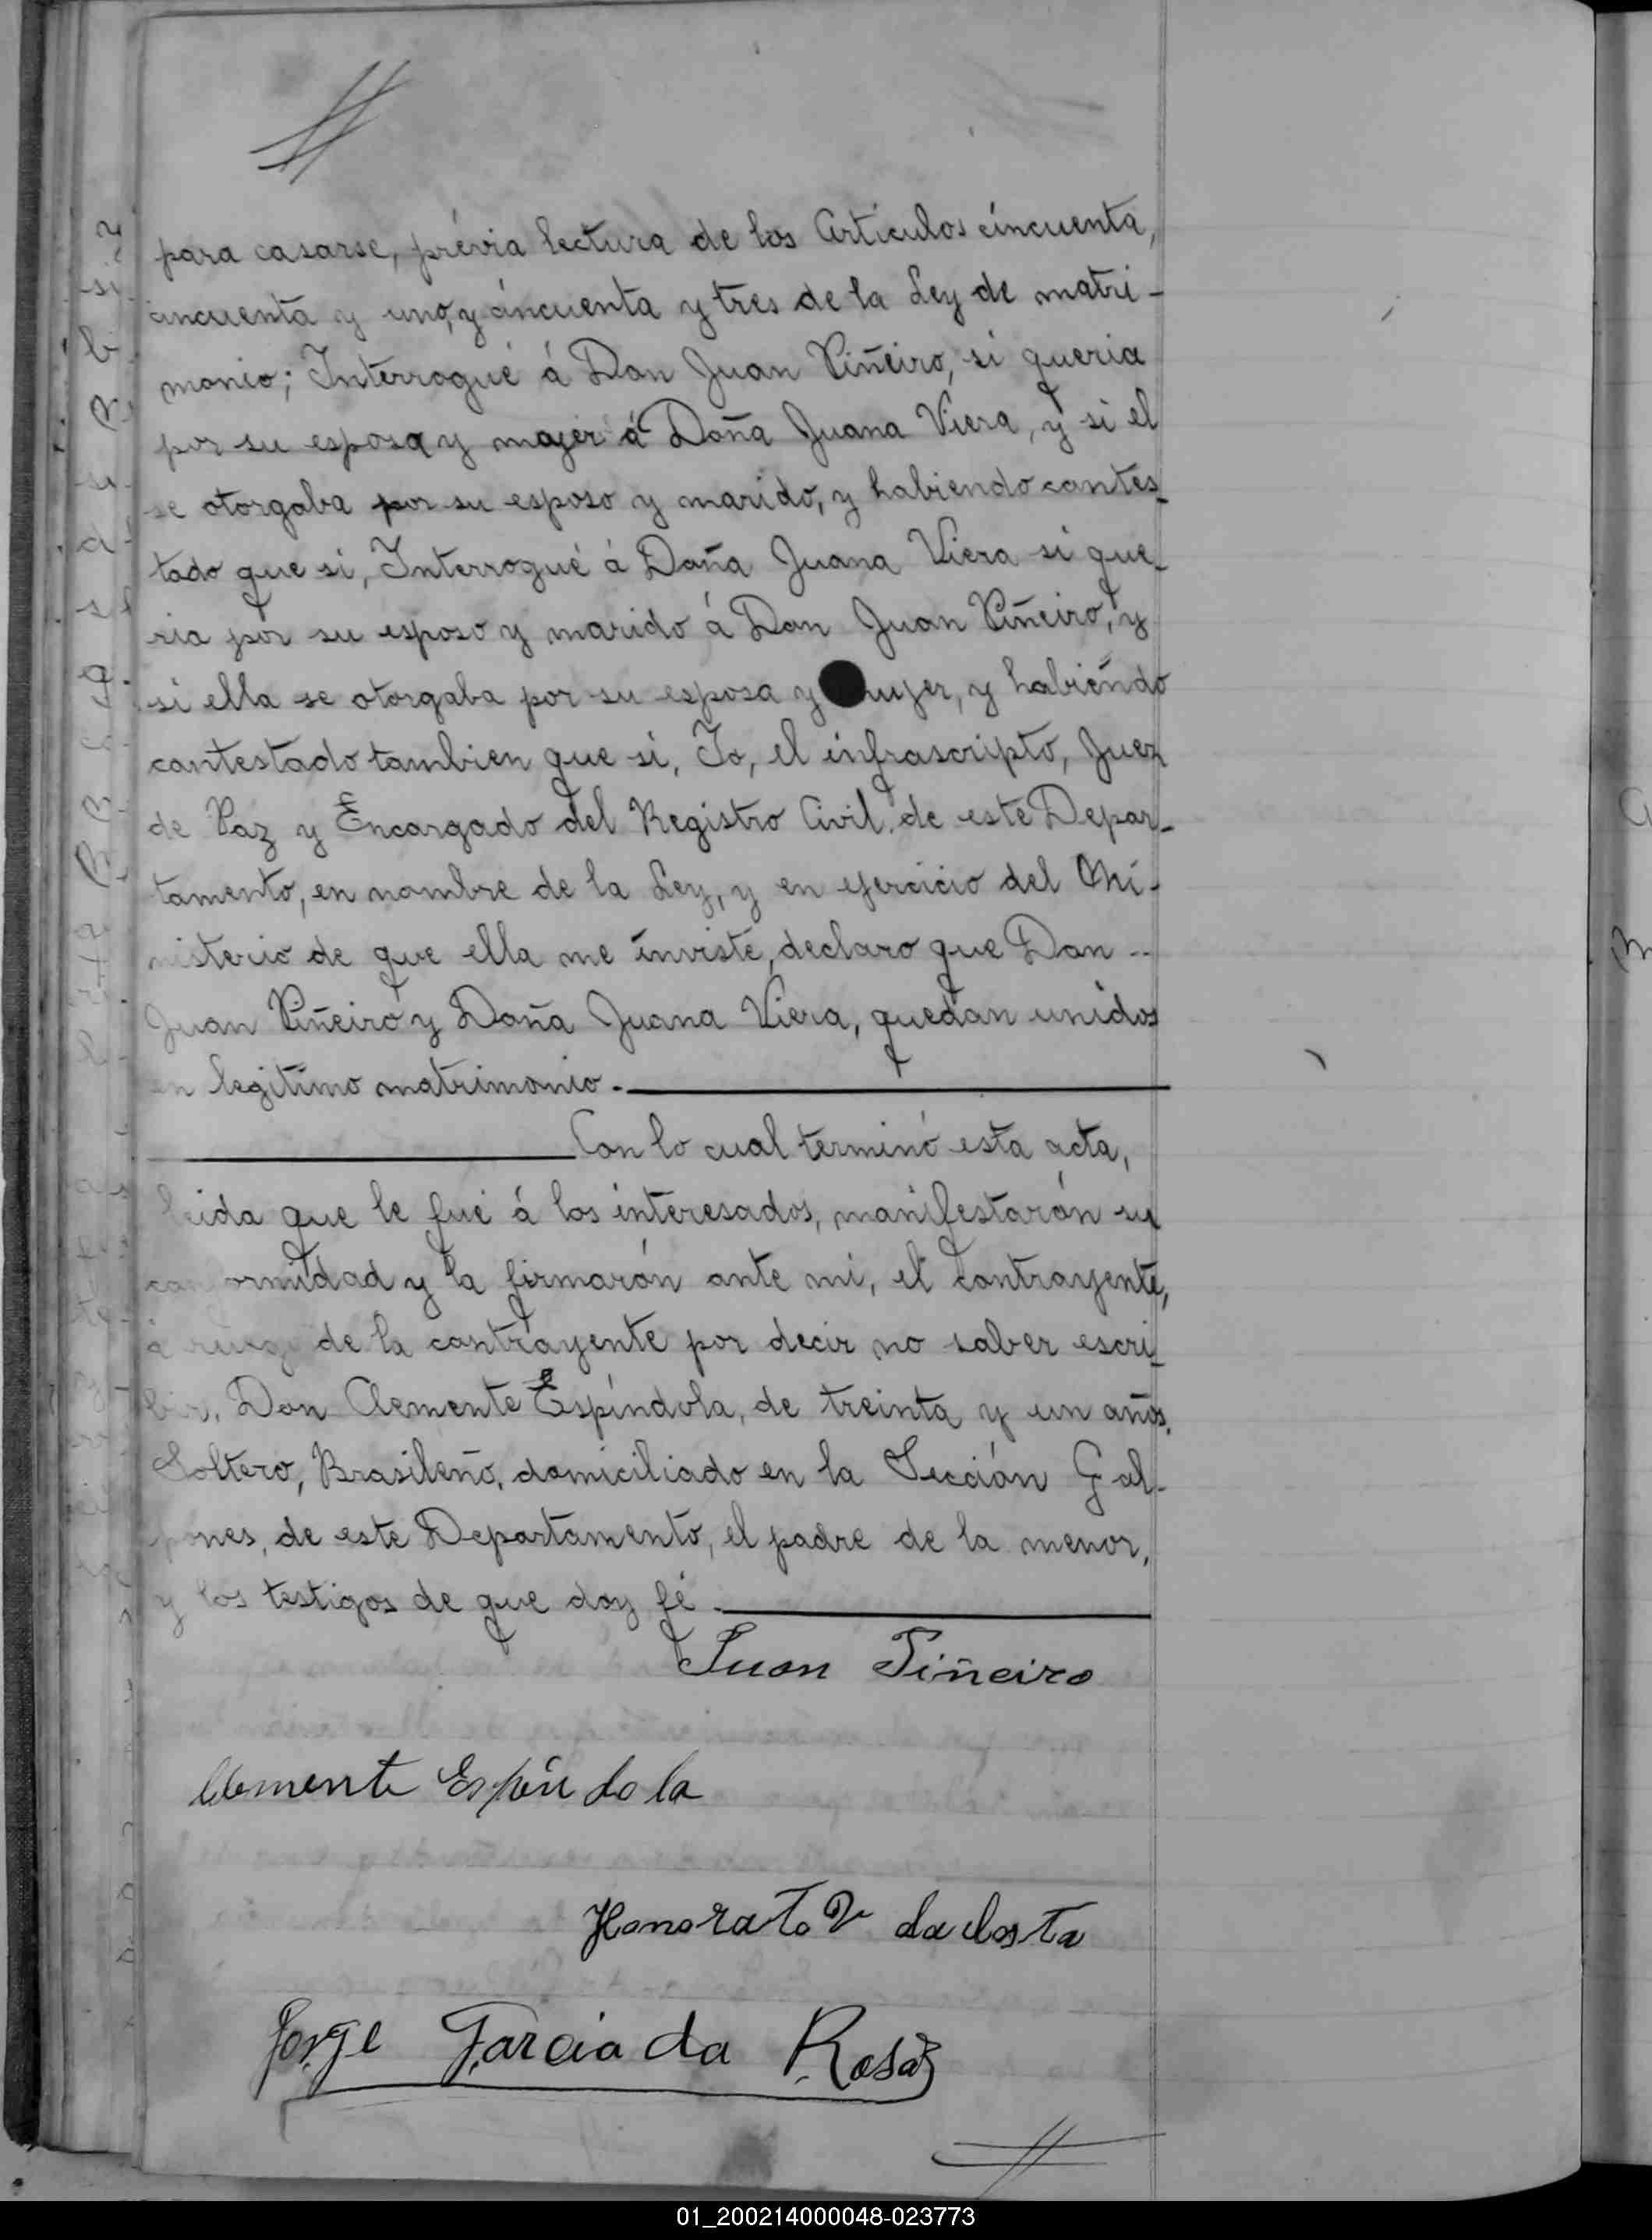 para casarse, prévia lectura de los Artículos cincuenta,
cincuenta y uno, y cincuenta y tres de la Ley de matri-
monio; Interrogué á Don Juan Piñeiro, si queria
por su esposa y mujer á Doña Juana Viera, y si el
se otorgaba por su esposo y marido, y habiendo contes-
tado que si, Interrogué á Doña Juana Viera si que-
ria por su esposo y marido á Don Juan Piñeiro, y
si ella se otorgaba por su esposa y mujer, y habiendo
contestado tambien que si, Yo, el infrascripto, Juez
de Paz y Encargado del Registro Civil de este Depar-
tamento, en nombre de la Ley, y en ejercicio del Mi-
nisterio de que ella me inviste, declaro que Don --
Juan Piñeiro y Doña Juana Viera, quedan unidos
en legitimo matrimonio.
Con lo cual terminó esta acta,
leida que le fué á los interesados, manifestarón su
conformidad y la firmarón ante mi, el contrayente,
á ruego de la contrayente por decir no saber escri-
bir, Don Clemente Espíndola, de treinta y un años,
Soltero, Brasileño, domiciliado en la Sección Gal-
pones, de este Departamento, el padre de la menor,
y los testigos de que doy fé.
Juan Piñeiro
Clemente Espíndola
Honorato V da Costa
Jorge Garcia da Rosa
01_200214000048-023773